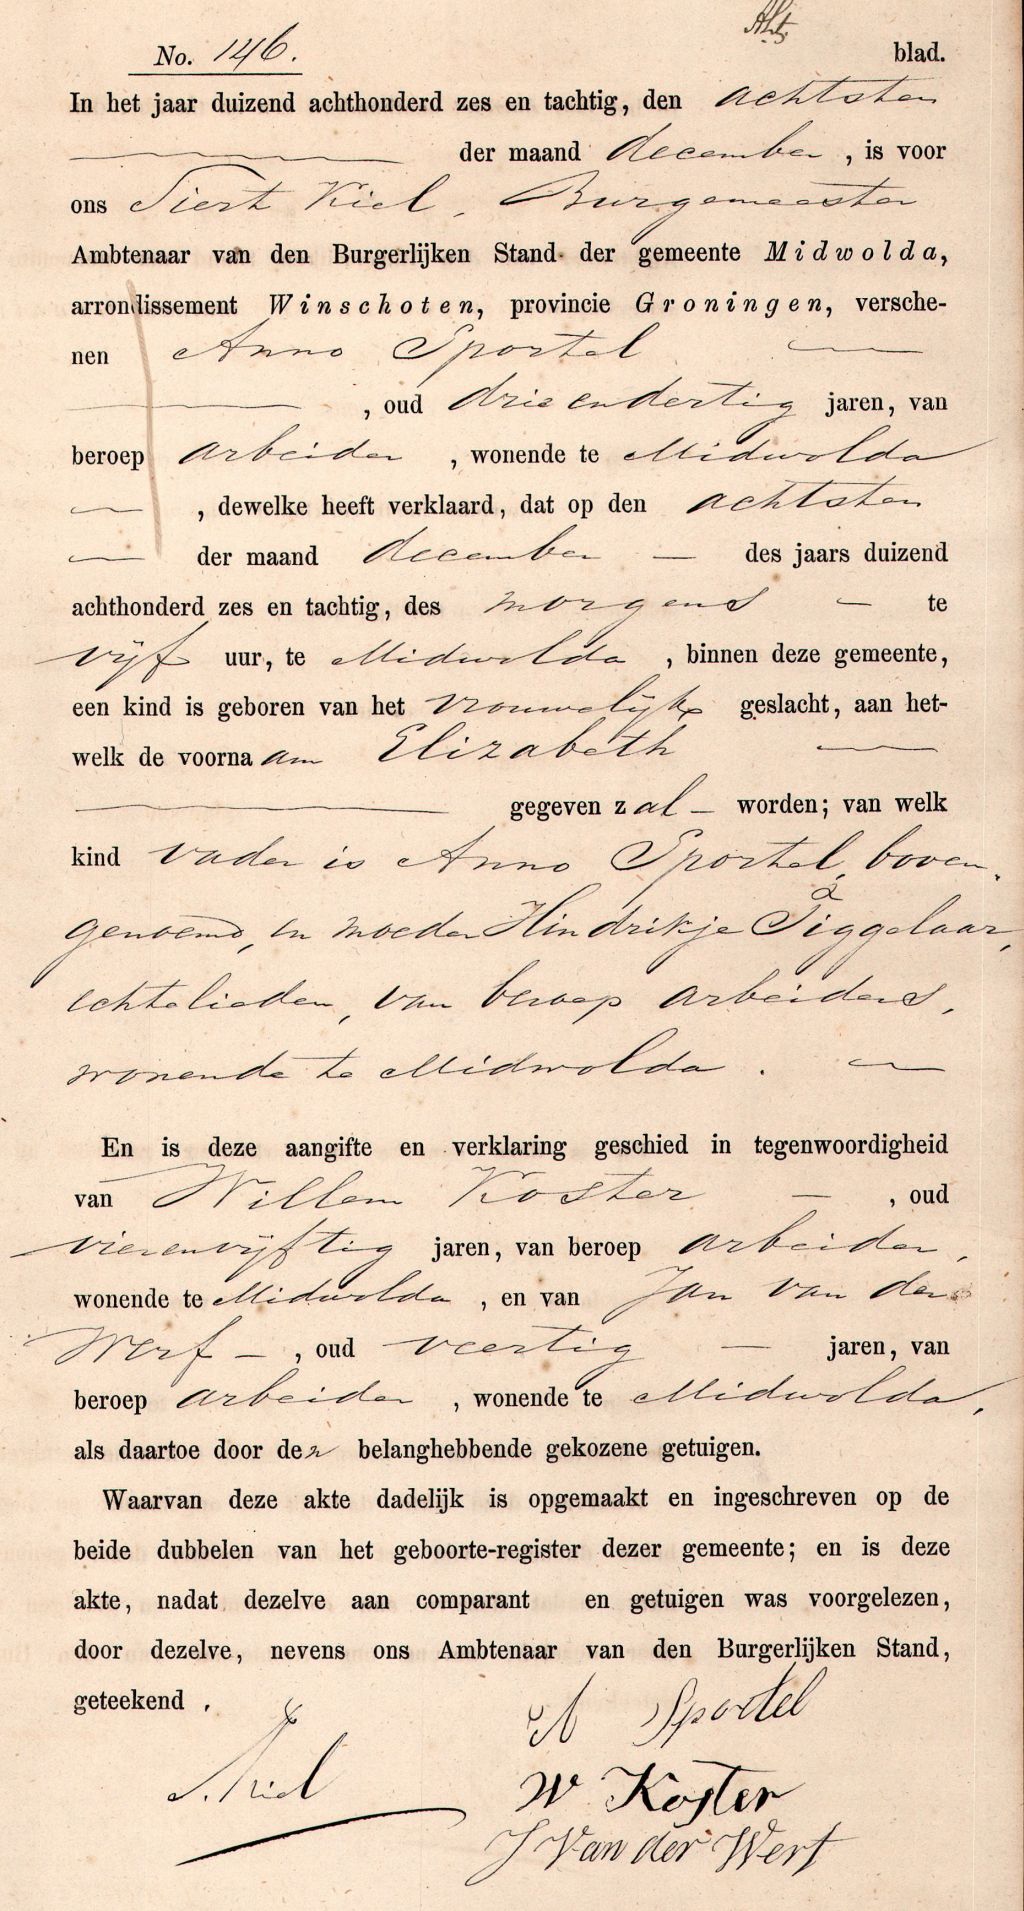 No. 146. blad.
In het jaar duizend achthonderd zes en tachtig, den achtsten
der maand december, is voor
ons Siert Kiel, Burgemeester
Ambtenaar van den Burgerlijken Stand der gemeente Midwolda,
arrondissement Winschoten, provincie Groningen, versche-
nen Anno Sportel
, oud drieendertig jaren, van
beroep arbeider, wonende te Midwolda
, dewelke heeft verklaard, dat op den achtsten
der maand december — des jaars duizend
achthonderd zes en tachtig, des morgens — te
vijf uur, te Midwolda, binnen deze gemeente,
een kind is geboren van het vrouwelijke geslacht, aan het-
welk de voornaam Elizabeth
gegeven zal — worden; van welk
kind vader is Anno Sportel, boven-
genoemd, en moeder Hindrikje Tiggelaar,
echtelieden, van beroep arbeiders,
wonende te Midwolda. —
En is deze aangifte en verklaring geschied in tegenwoordigheid
van Willem Koster — , oud
vierenvijftig jaren, van beroep arbeider,
wonende te Midwolda, en van Jan van der
Werf —, oud veertig — jaren, van
beroep arbeider, wonende te Midwolda,
als daartoe door den belanghebbende gekozene getuigen.
Waarvan deze akte dadelijk is opgemaakt en ingeschreven op de
beide dubbelen van het geboorte-register dezer gemeente; en is deze
akte, nadat dezelve aan comparant en getuigen was voorgelezen,
door dezelve, nevens ons Ambtenaar van den Burgerlijken Stand,
geteekend.
A Sportel
S. Kiel
W Koster
J Van der Werf